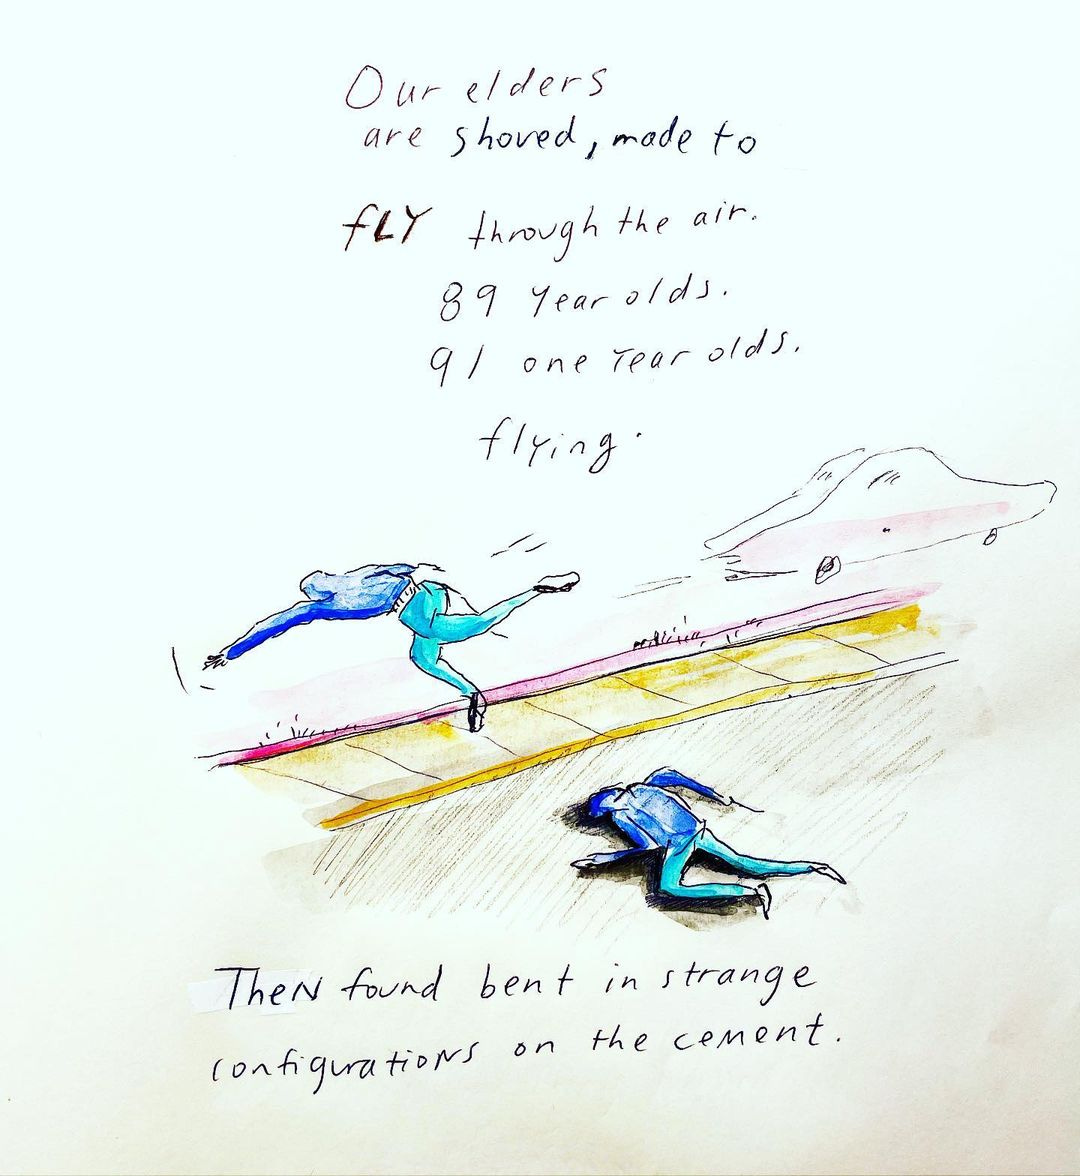 Our elders
are shoved, made to
fLY through the air.
89 Year olds.
91 one Year olds.
flying.
TheN found bent in strange
configuratioNs on the cement.